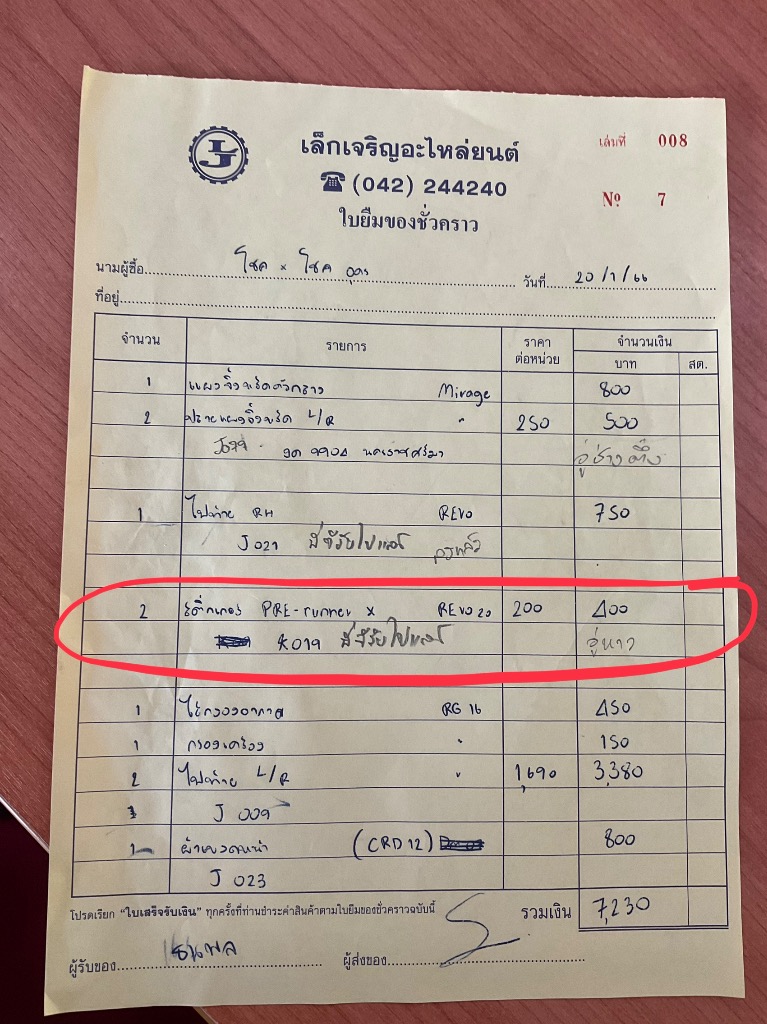 LJ
เล็กเจริญอะไหล่ยนต์
เล่มที่ 008
☎ (042) 244240
Nº 7
ใบยืมของชั่วคราว
นามผู้ซื้อ โชค x โชค อุดร วันที่ 20/1/66
ที่อยู่
จำนวน รายการ ราคาต่อหน่วย จำนวนเงิน
บาท สต.
1 แผงจิ้งหรีดตัวกลาง Mirage 800
2 ปลายแผงจิ้งหรีด L/R " 250 500
นครราชสีมา อู่ช่าง
1 ไฟท้าย RH REVO 750
J 021
2 สติ๊กเกอร์ PRE-runner x REVO 20 200 400
K019
1 ไส้กรองอากาศ RG 16 450
1 กรองเครื่อง " 150
2 ไฟท้าย L/R " 1,690 3,380
J 009
1 ผ้าเบรคหน้า (CRD12) 800
J 023
โปรดเรียก "ใบเสร็จรับเงิน" ทุกครั้งที่ท่านชำระค่าสินค้าตามใบยืมของชั่วคราวฉบับนี้ รวมเงิน 7,230
ผู้รับของ ธนพล ผู้ส่งของ